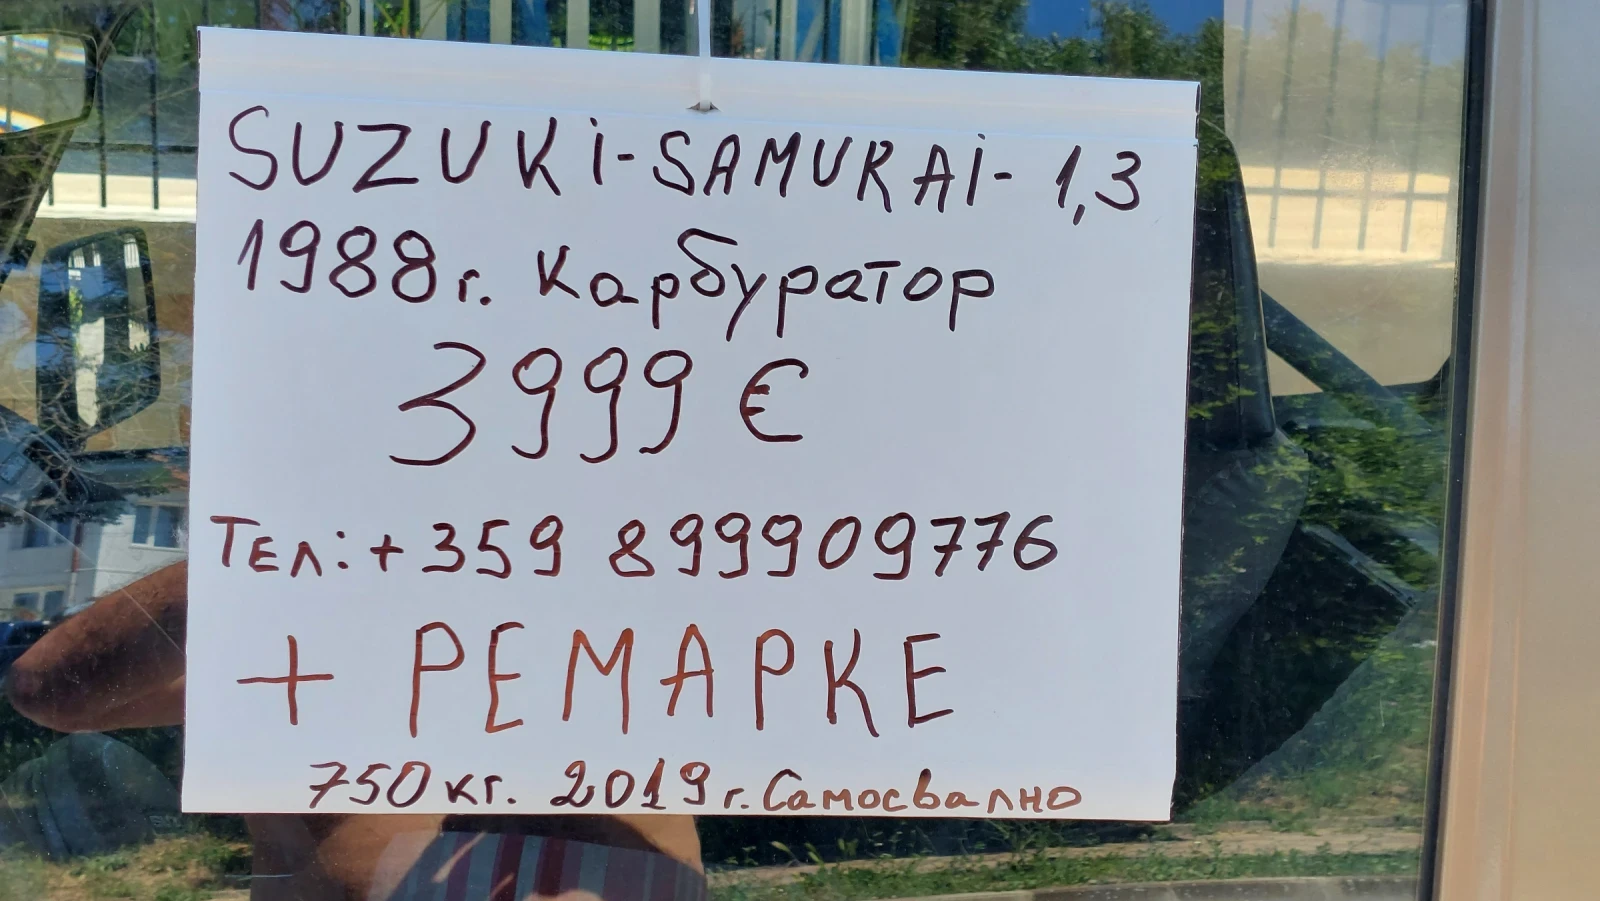 SUZUKi-SAMURAi-1,3
1988г. карбуратор
3999 €
Тел:+359 899909776
+ РЕМАРКЕ
750кг. 2019г. Самосвално